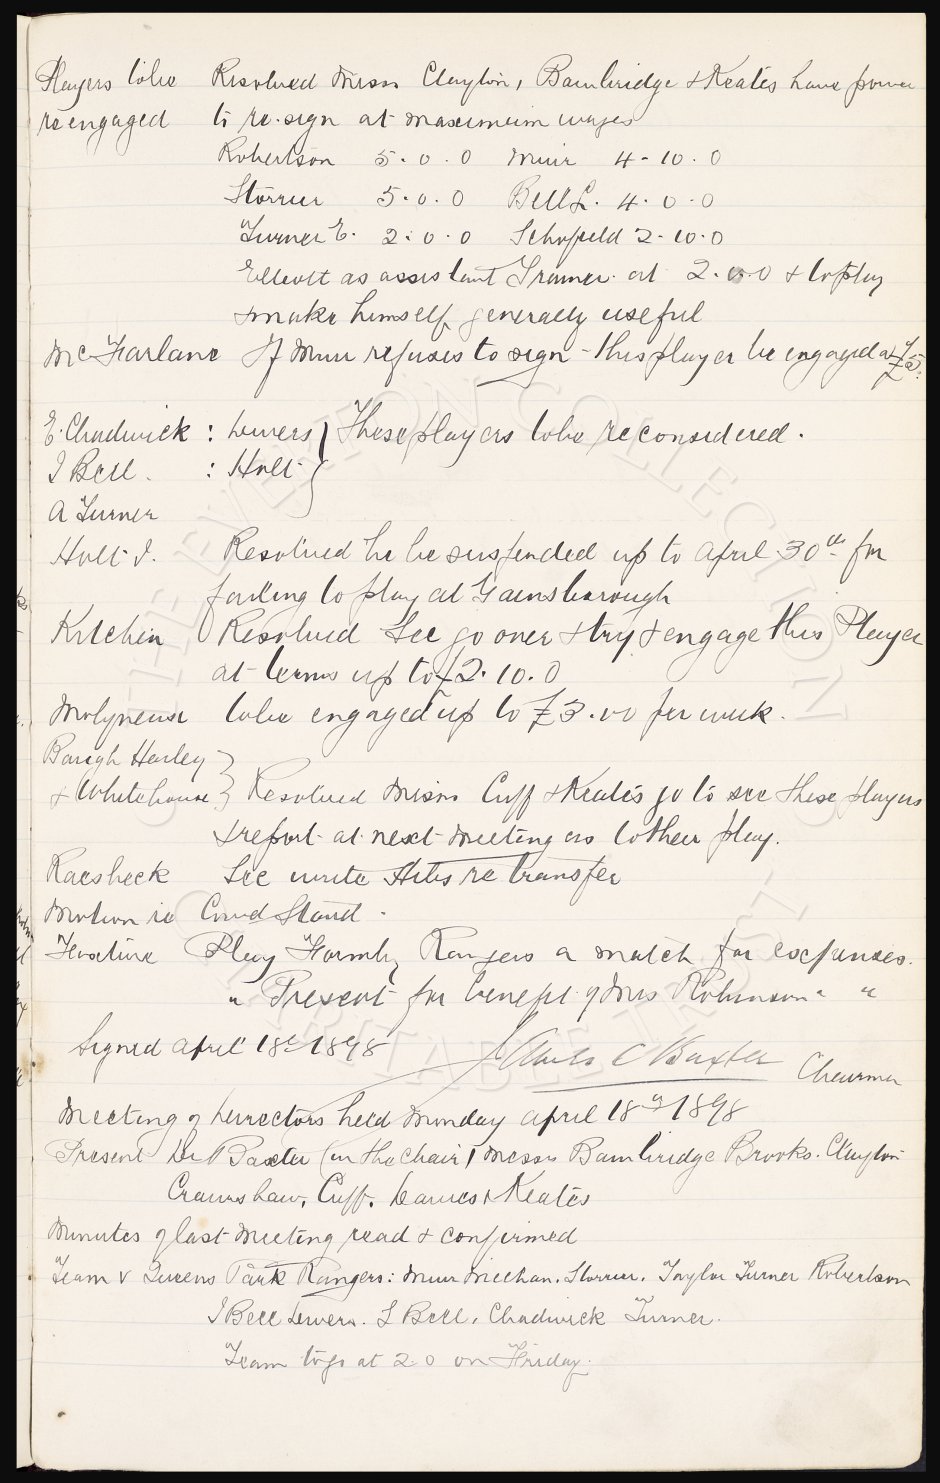 Players to be Resolved Messrs Clayton, Bainbridge & Keates have power
re engaged to re-sign at maximum wages
Robertson 5. 0. 0 Muir 4- 10. 0
Storrier 5. 0. 0 Bell L. 4. 0. 0
Turner E. 2. 0. 0 Schofield 2. 10. 0
Elliott as assistant Trainer at 2. 0. 0 & to play
& make himself generally useful
McFarlane If Muir refuses to sign - this player be engaged at £5.
E. Chadwick : Divers } These players to be reconsidered.
J Bell. : Holt
A Turner
Holt J. Resolved he be suspended up to April 30th for
failing to play at Gainsborough
Kitchen Resolved Sec go over & try & engage this Player
at terms up to £2. 10. 0
Molyneux to be engaged up to £3. 0 0 per week.
Baugh Harley }
& Whitehouse } Resolved Messrs Cuff & Keates go to see these players
& report at next meeting as to their play.
Sec write re transfer
Motion re Covd Stand.
Fixture Play Formby Rangers a match for expenses.
" Prescot for benefit of Mrs Robinson " "
Signed April 18th 1898 James C Baxter
Chairman
Meeting of Directors held Monday April 18th 1898
Present Dr Baxter (in the Chair) Messrs Bainbridge Brooks. Clayton
Crawshaw, Cuff. Davies & Keates
Minutes of last meeting read & confirmed
Team v Queens Park Rangers: Muir Meehan. Storrier. Taylor Turner Robertson
J Bell Divers. L Bell. Chadwick Turner.
Team to go at 2 0 on Friday.
THE EVERTON COLLECTION
CHARITABLE TRUST